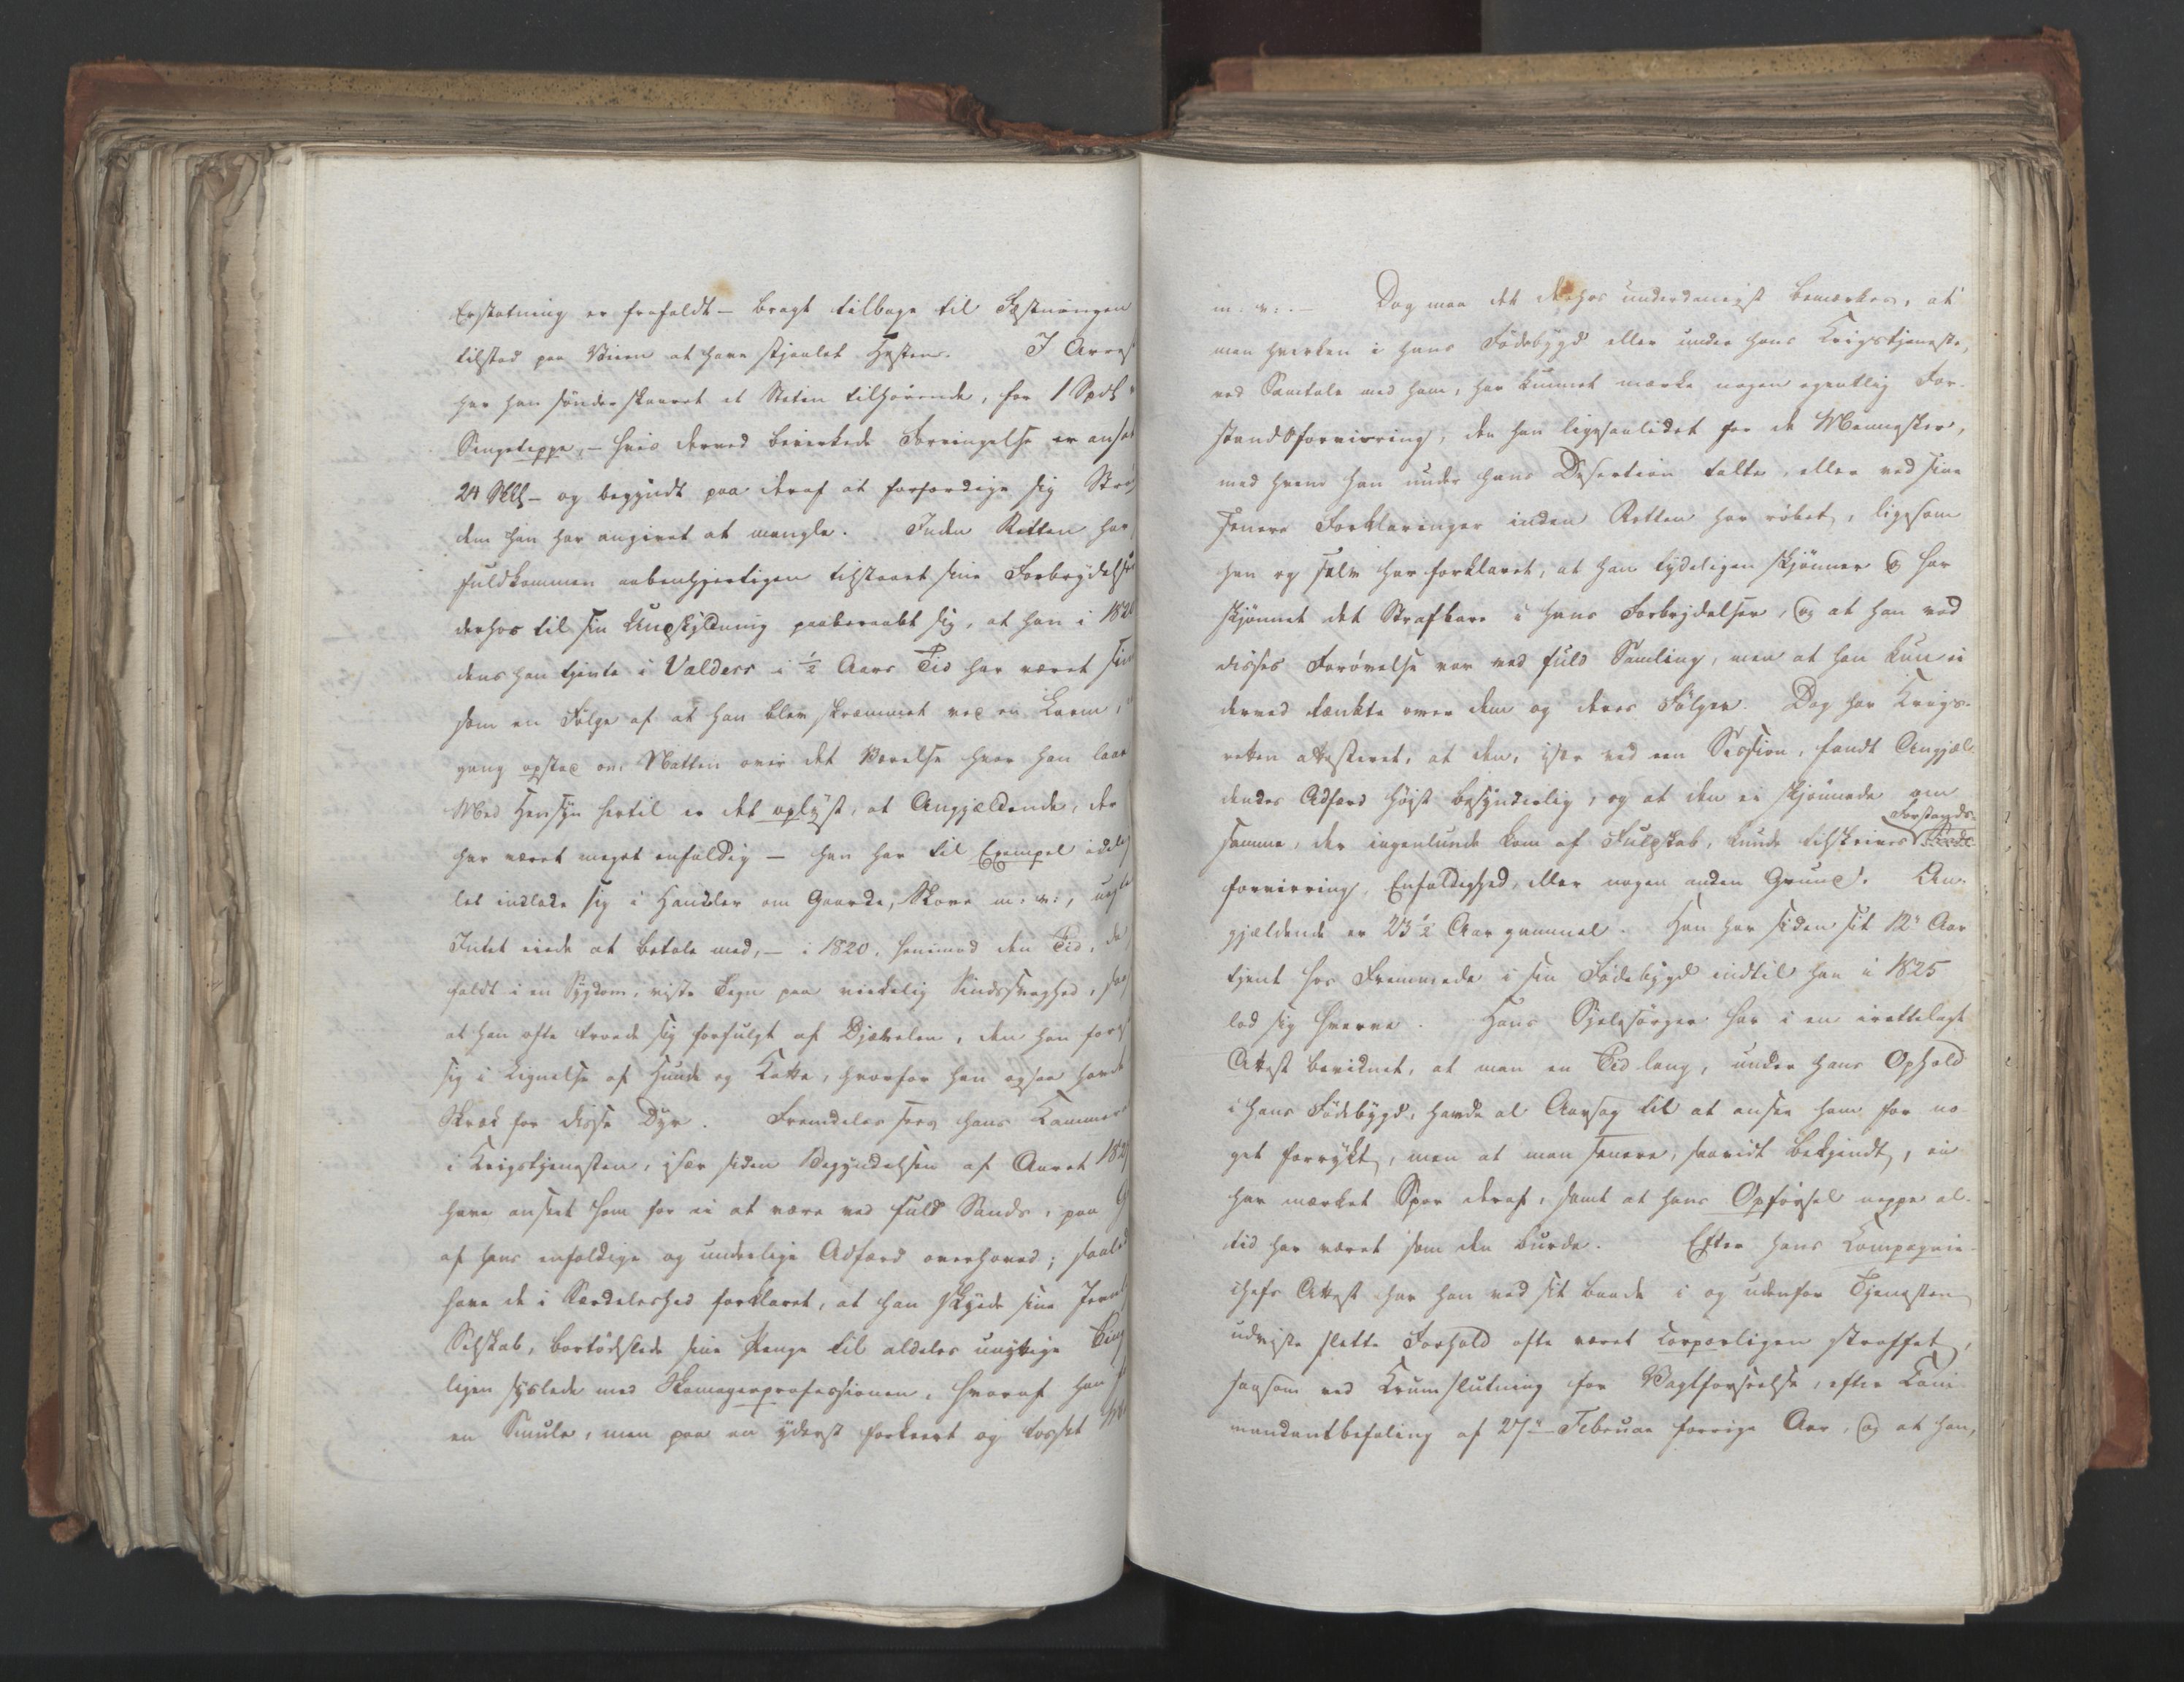 Erstatning er frafaldt – bragt tilbage til Fæstningen
tilstod paa Veien at have stjaalet Hesten. I Arrest
har han sönderskaaret et Staten tilhörende, for 1 Spdlr
Sengeteppe, – hvis derved bevirkede Forringelse er ansat
24 Skll – og begyndt paa deraf at forfærdige sig
dem han har angivet at mangle. Inden Retten har
fuldkommen aabenhjertigen tilstaaet sine Forbrydelser
derhos til sin Undskyldning paaberaabt sig, at han i
dens han tjente i Valders i ½ Aars Tid har været
som en Fölge af at han blev skræmmet ved en Larm,
gang opstod om Natten over det Værelse hvor han laae
Med Hensyn hertil er det oplyst, at Angjældende, der
har været meget enfoldig – han har til Exempel
let indlade sig i Handeler om Gaarde, Skove m. v.,
Intet eiede at betale med, – i 1820, henimod den Tid, da
faldt i en Sygdom, viste Tegn paa virkelig Sindssvaghed,
at han ofte troede sig forfulgt af Djævelen, den han
sig i Lignelse af Hunde og Katte, hvorfor han ogsaa havde
Skræk for disse Dyr. Fremdeles sees hans
i Krigstjenesten, især siden Begyndelsen af Aaret
have anseet ham for ei at være ved fuld Sands, paa
af hans enfoldige og underlige Adfærd overhoved;
have de i Særdeleshed forklaret, at han skyede sine
Selskab, bortödslede sine Penge til aldeles unyttige Ting
ligen syslede med Skomagerprofessionen, hvoraf han
en Smule, men paa en yderst forkeert og tosset
m. v. – Dog maa det derhos underdanigst bemærkes, at
man hverken i hans Födebygd eller under hans Krigstjeneste,
ved Samtale med ham, har kunnet mærke nogen egentlig For-
standsforvirring, den han ligesaalidet for de Mennesker,
med hvem han under hans Desertion talte, eller ved sine
senere Forklaringer inden Retten har röbet, ligesom
han og selv har forklaret, at han tydeligen skjönner og har
skjönnet det Strafbare i hans Forbrydelser, og at han ved
disses Forövelse var ved fuld Samling, men at han kun ei
derved tænkte over dem og deres Fölger. Dog har Krigs-
retten attesteret, at den, især ved een Session, fandt Angjæl-
dendes Adfærd höist besynderlig, og at den ei skjönnede om
Forstands-
samme, der ingenlunde kom af Fulskab, kunde tilskrives
forvirring, Enfoldighed, eller nogen anden Grund. An-
gjældende er 23½ Aar gammel. Han har siden sit 12te Aar
tjent hos Fremmede i sin Födebygd indtil han i 1825
lod sig hverve. Hans Sjelesörger har i en irettelagt
Attest bevidnet, at man en Tid lang, under hans Ophold
i hans Födebygd, havde al Aarsag til at ansee ham for no-
get forrykt, men at man senere, saavidt bekjendt, ei
har mærket Spor deraf, samt at hans Opförsel neppe al-
tid har været som den burde. Efter hans Compagnie-
chefs Attest har han ved sit baade i og udenfor Tjenesten
udviste slette Forhold ofte været corporligen straffet,
saasom ved Krumslutning for Vagtforseelse, efter Com-
mandantbefaling af 27de Februar forrige Aar, og at han,